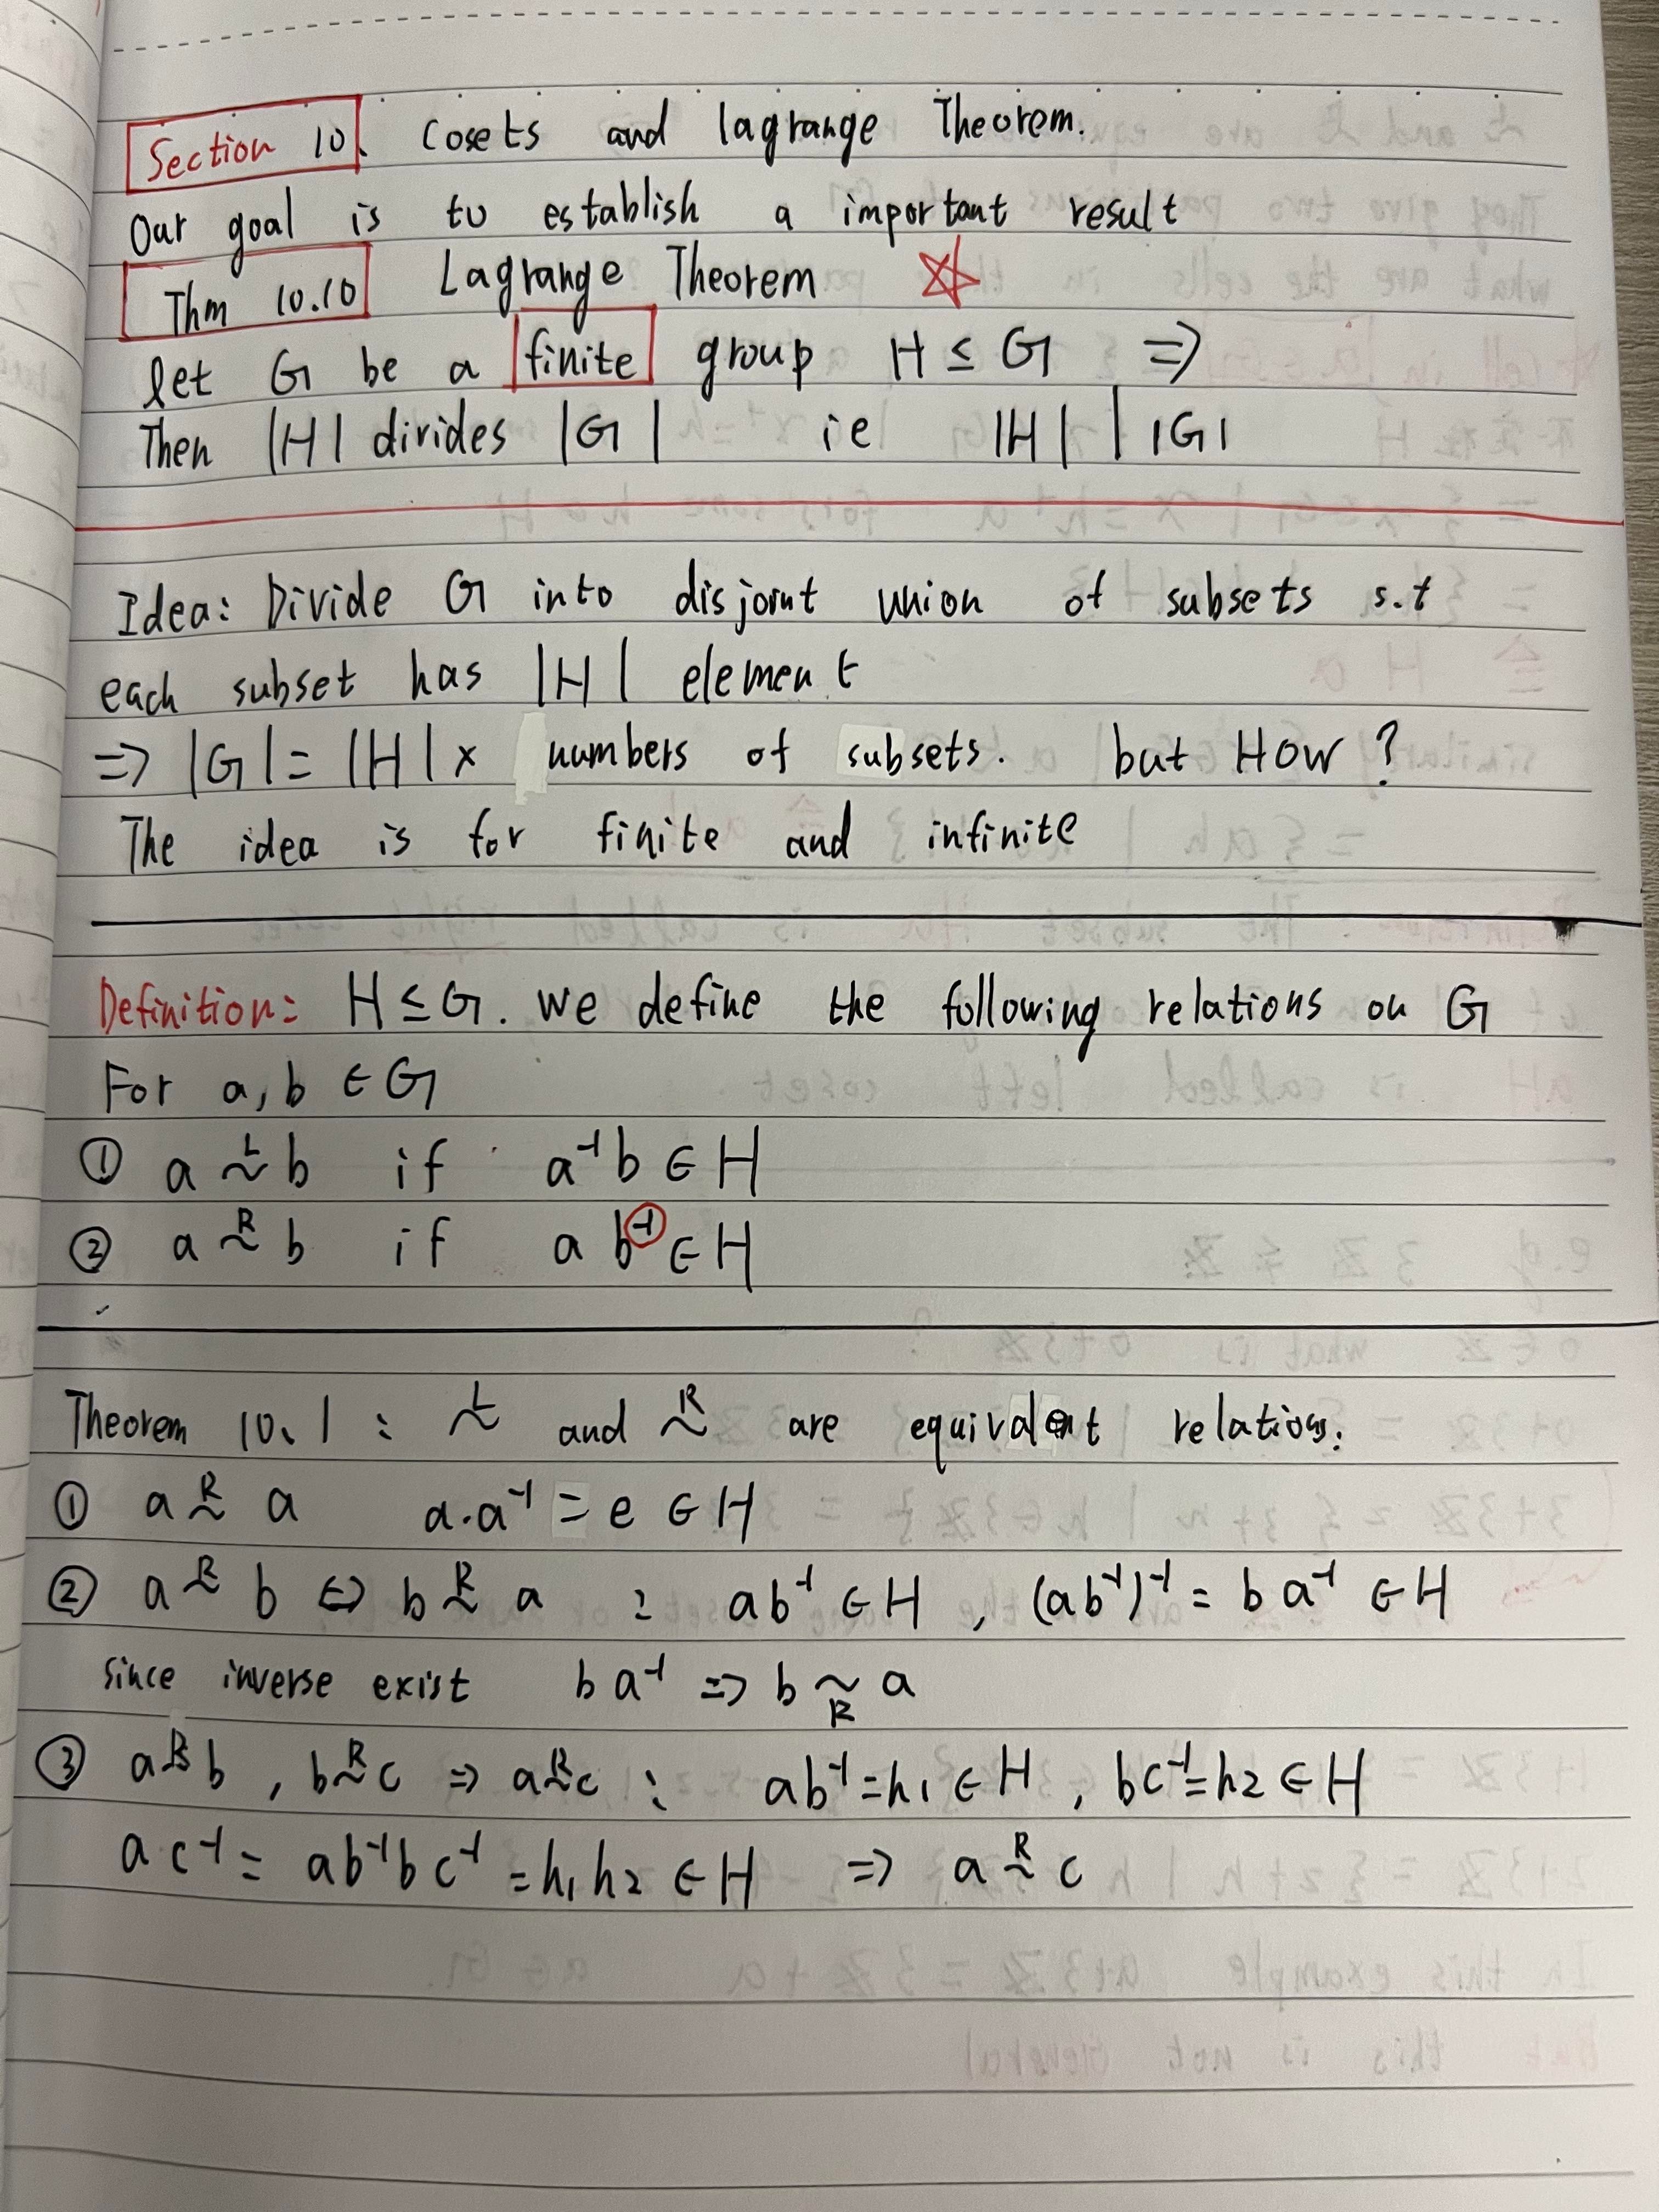 Section 10. Cosets and lagrange Theorem.
Our goal is to establish a important result
Thm 10.10 Lagrange Theorem ☆
let G be a finite group H ≤ G ⇒
Then |H| divides |G| ie |H| | |G|
Idea: Divide G into disjoint union of subsets s.t
each subset has |H| element
⇒ |G| = |H| × numbers of subsets. but How?
The idea is for finite and infinite
Definition: H ≤ G. We define the following relations on G
For a, b ∈ G
① a ~ᴸ b if a⁻¹b ∈ H
② a ~ᴿ b if a b⁻¹ ∈ H
Theorem 10.1: ~ᴸ and ~ᴿ are equivalent relations.
① a ~ᴿ a a·a⁻¹ = e ∈ H
② a ~ᴿ b ⇔ b ~ᴿ a : ab⁻¹ ∈ H, (ab⁻¹)⁻¹ = b a⁻¹ ∈ H
Since inverse exist b a⁻¹ ⇒ b ~ᵣ a
③ a ~ᴿ b, b ~ᴿ c ⇒ a ~ᴿ c : ab⁻¹ = h₁ ∈ H, bc⁻¹ = h₂ ∈ H
a c⁻¹ = ab⁻¹bc⁻¹ = h₁h₂ ∈ H ⇒ a ~ᴿ c